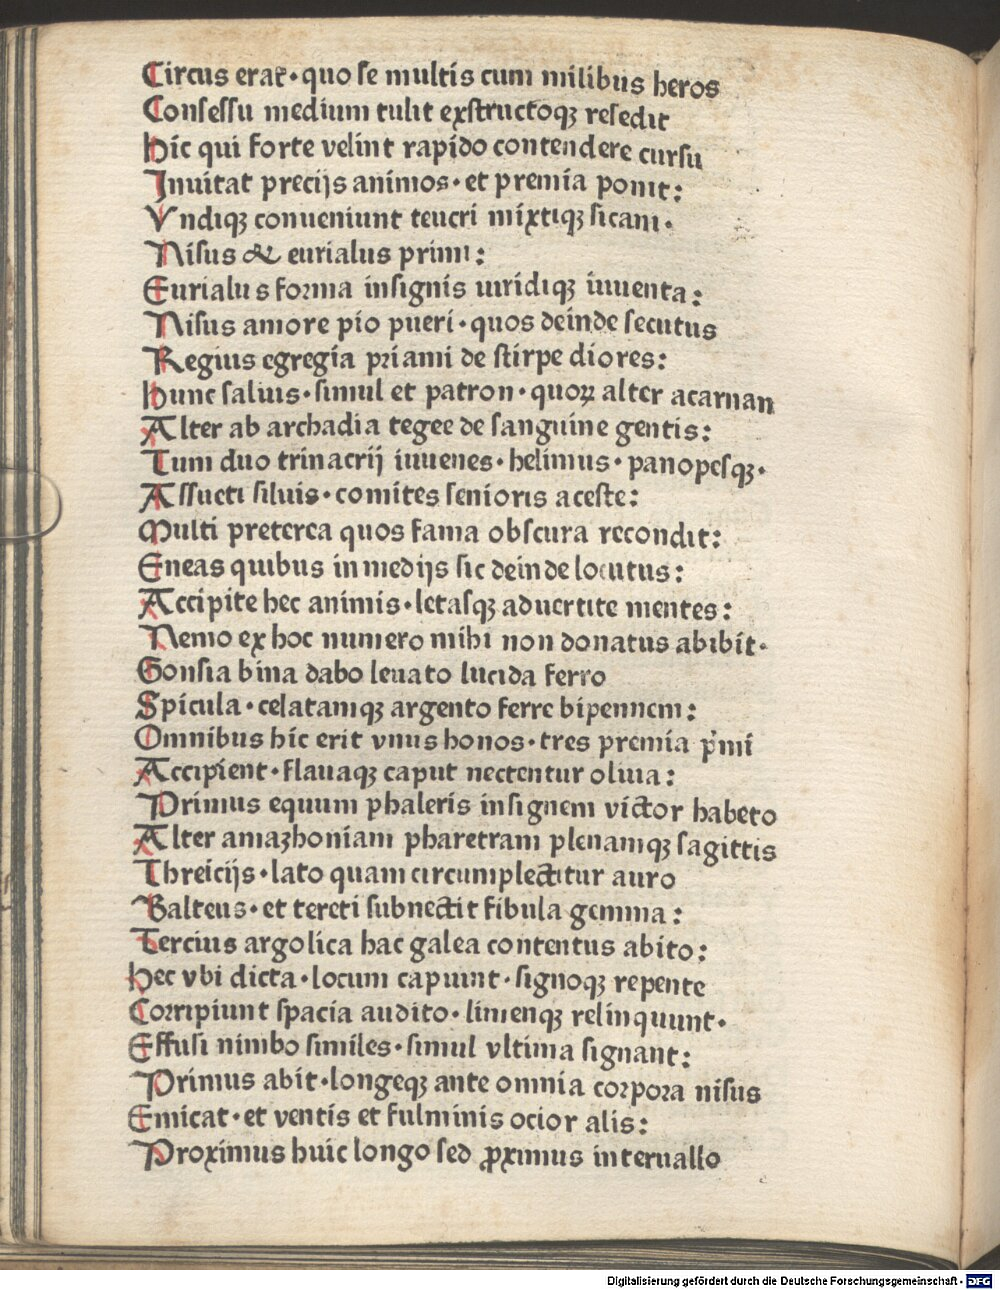 Circus erat · quo se multis cum milibus heros
Consessu medium tulit exstructoqꝫ resedit
Hic qui forte velint rapido contendere cursu
Inuitat precijs animos · et premia ponit:
Vndiqꝫ conueniunt teucri mixtiqꝫ sicani ·
Nisus & eurialus primi:
Eurialus forma insignis uiridiqꝫ iuuenta:
Nisus amore pio pueri · quos deinde secutus
Regius egregia priami de stirpe diores:
Hunc salius · simul et patron · quoꝝ alter acarnan
Alter ab archadia tegee de sanguine gentis:
Tum duo trinacrij iuuenes · helimus · panopesqꝫ ·
Assueti siluis · comites senioris aceste:
Multi preterea quos fama obscura recondit:
Eneas quibus in medijs sic deinde locutus:
Accipite hec animis · letasqꝫ aduertite mentes:
Nemo ex hoc numero mihi non donatus abibit ·
Gonsia bina dabo leuato lucida ferro
Spicula · celatamqꝫ argento ferre bipennem:
Omnibus hic erit vnus honos · tres premia p̾mi
Accipient · flauaqꝫ caput nectentur oliua:
Primus equum phaleris insignem victor habeto
Alter amazhoniam pharetram plenamqꝫ sagittis
Threicijs · lato quam circumplectitur auro
Balteus · et tereti subnectit fibula gemma:
Tercius argolica hac galea contentus abito:
Hec vbi dicta · locum capiunt · signoqꝫ repente
Corripiunt spacia audito · limenqꝫ relinquunt ·
Effusi nimbo similes · simul vltima signant:
Primus abit · longeqꝫ ante omnia corpora nisus
Emicat · et ventis et fulminis ocior alis:
Proximus huic longo sed ꝓximus interuallo
Digitalisierung gefördert durch die Deutsche Forschungsgemeinschaft · DFG